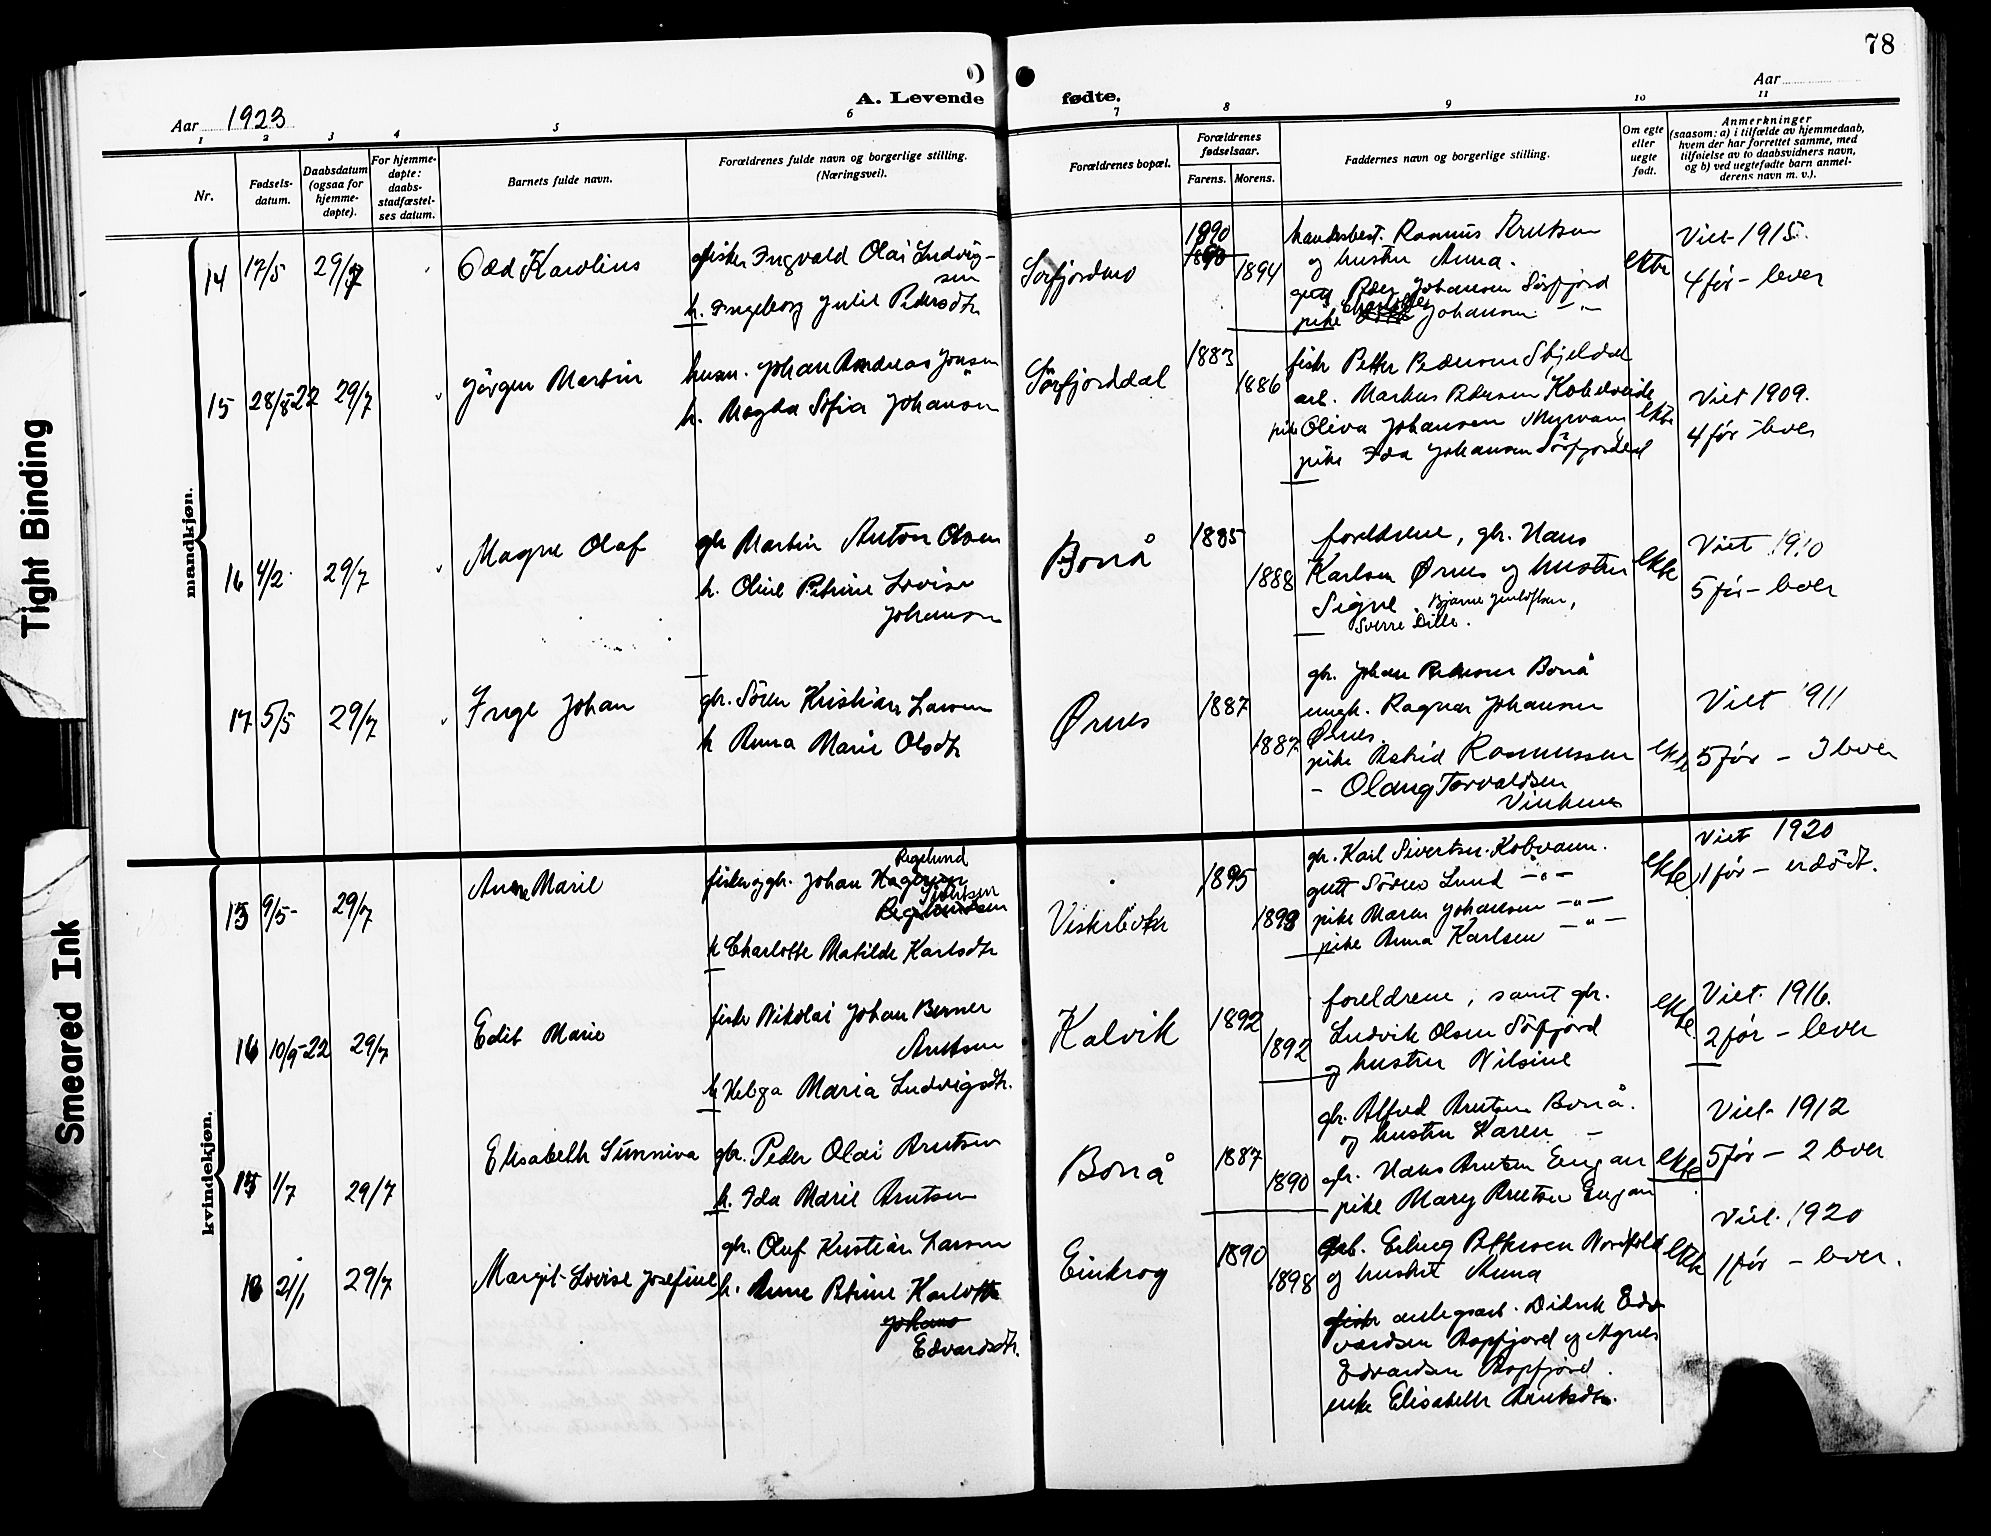 Tight Binding
Smeared Ink
78
A. Levende fødte.
Aar 1923
Aar
1 2 3 4 5 6 7 8 9 10 11
Nr.
Fødsels-
datum.
Daabsdatum
(ogsaa for
hjemme-
døpte).
For hjemme-
døpte:
daabs-
stadfæstel-
ses datum.
Barnets fulde navn.
Forældrenes fulde navn og borgerlige stilling.
(Næringsvei).
Forældrenes bopæl.
Forældrenes
fødselsaar.
Farens. Morens.
Faddernes navn og borgerlige stilling.
Om egte
eller
uegte
født.
Anmerkninger
(saasom: a) i tilfælde av hjemmedaab,
hvem der har forrettet samme, med
tilføielse av to daabsvidners navn,
og b) ved uegtefødte barn anmel-
derens navn m. v.).
mandkjøn.
14 17/5 29/7 Odd Karolius
fisker Ingvald Olai Ludvig-
sen
h. Ingeborg Julie Pedersdtr
Sørfjordmo
1890
1894
Rasmus Knutsen
og hustru Anna.
Peder Johansen Sørfjord
pike Johansen — " —
ekte
Viet 1915.
4 før – lever
15 28/8-22 29/7 Jörgen Martin
husm. Johan Andreas Jonsen
h. Magda Sofia Johansen
Sørfjorddal
1883
1886
fisker Petter Pedersen
arb. Markus Pedersen Kobvatn
pike Oliva Johansen Myrvang
pike Ida Johansen Sörfjorddal
ekte
Viet 1909.
4 før – lever
16 4/2 29/7 Magne Olaf
gbr Martin Anton Olsen
h. Oline Petrine Lovise
Johansen
Bonå
1885
1888
foreldrene, gbr. Hans
Karlsen Ørnes og hustru
Signe. Bjarne
Sverre
ekte
Viet 1910
5 før – lever
17 5/5 29/7 Inge Johan
gbr. Sören Kristian Larsen
h Anna Marie Olsdtr
Ørnes
1887
1887
gbr. Johan Bonå
ungk. Ragnar Johansen
Ørnes.
pike Astrid Rasmussen
– Olaug Torvaldsen
ekte
Viet 1911
5 før – 3 lever
kvindekjøn.
13 9/5 29/7 Anne Marie
fisker og gbr. Johan Hagbart
Regelund
Sivertsen
h Charlotte Matilde Karlsdtr
1895
1899
gbr. Karl Sivertsen Kobvann.
gutt Sören Lund — " —
pike Maren Johansen — " —
pike Anna Karlsen — " —
ekte
Viet 1920
1 før – er död.
14 10/9-22 29/7 Edit Marie
fisker Nikolai Johan Berner
Knutsen
h Helga Maria Ludvigsdtr.
Kalvik
1892
1892
foreldrene, samt gbr.
Ludvik Olsen Sörfjord
og hustru Nilsine
ekte
Viet 1916.
2 før – lever
15 1/7 29/7 Elisabeth Sunniva
gbr. Peder Olai Knutsen
h. Ida Marie Knutsen
Bonå
1887
1890
gbr. Alfred Knutsen Bonå.
og hustru Karen –
gbr. Hans Knutsen Engan
pike Mary Knutsen Engan
ekte
Viet 1912
5 før – 2 lever
16 21/1 29/7 Margit Lovise Josefine
gbr. Oluf Kristian Larsen
h. Anne Petrine Karlotte
Johans
Edvardsdtr.
Einkrog
1890
1898
arb. Erling Pettersen Nordfold
og hustru Anna
anlegsarb. Didrik Ed-
vardsen Aapfjord og Agnes
Edvardsen Aapfjord.
enke Elisabeth Knutsdtr.
ekte
Viet 1920
1 før – lever.